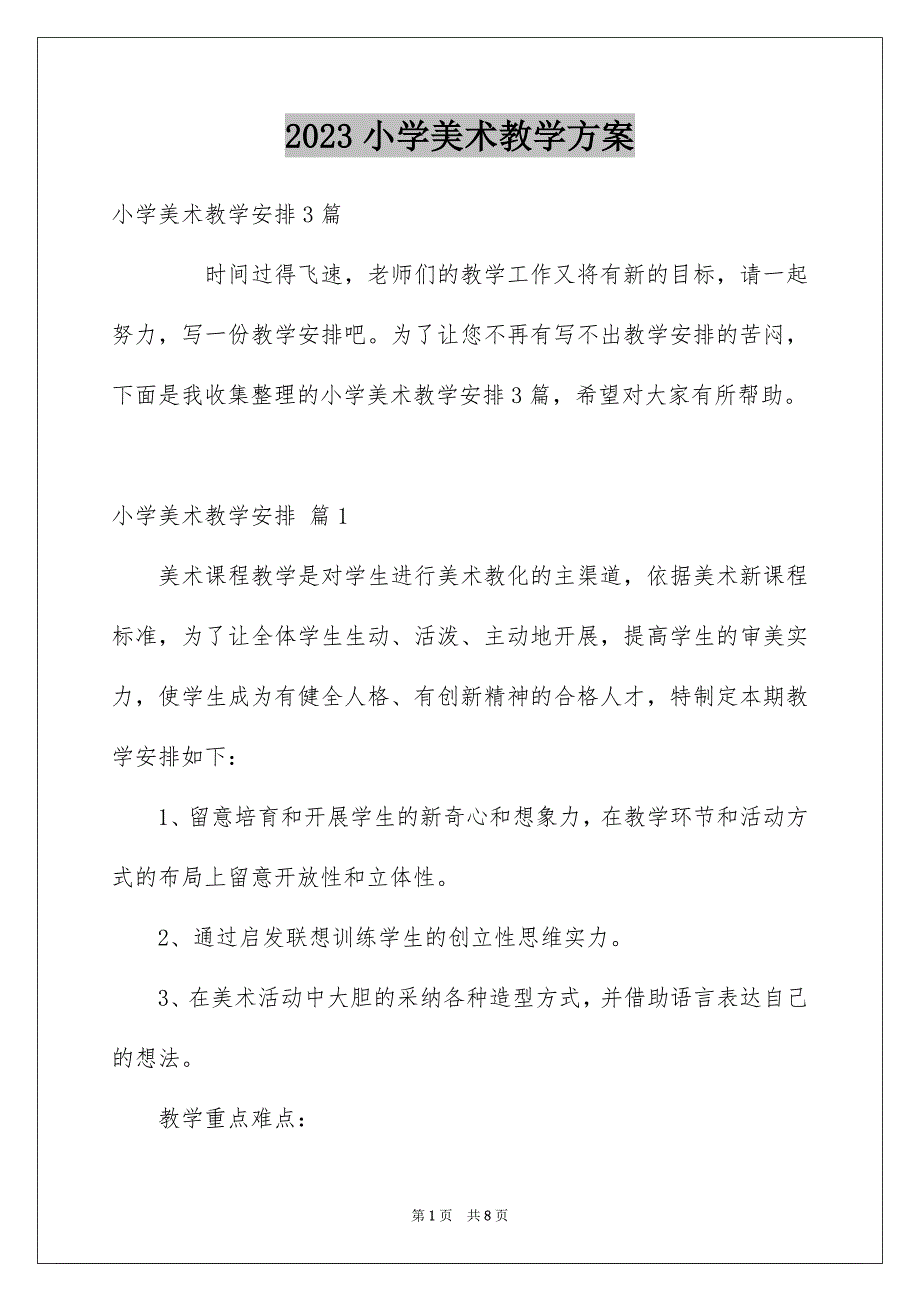 2023小学美术教学方案
小学美术教学安排3篇
时间过得飞速，老师们的教学工作又将有新的目标，请一起
努力，写一份教学安排吧。为了让您不再有写不出教学安排的苦闷，
下面是我收集整理的小学美术教学安排3篇，希望对大家有所帮助。
小学美术教学安排 篇1
美术课程教学是对学生进行美术教化的主渠道，依据美术新课程
标准，为了让全体学生生动、活泼、主动地开展，提高学生的审美实
力，使学生成为有健全人格、有创新精神的合格人才，特制定本期教
学安排如下：
1、留意培育和开展学生的新奇心和想象力，在教学环节和活动方
式的布局上留意开放性和立体性。
2、通过启发联想训练学生的创立性思维实力。
3、在美术活动中大胆的采纳各种造型方式，并借助语言表达自己
的想法。
教学重点难点：
第1页 共8页